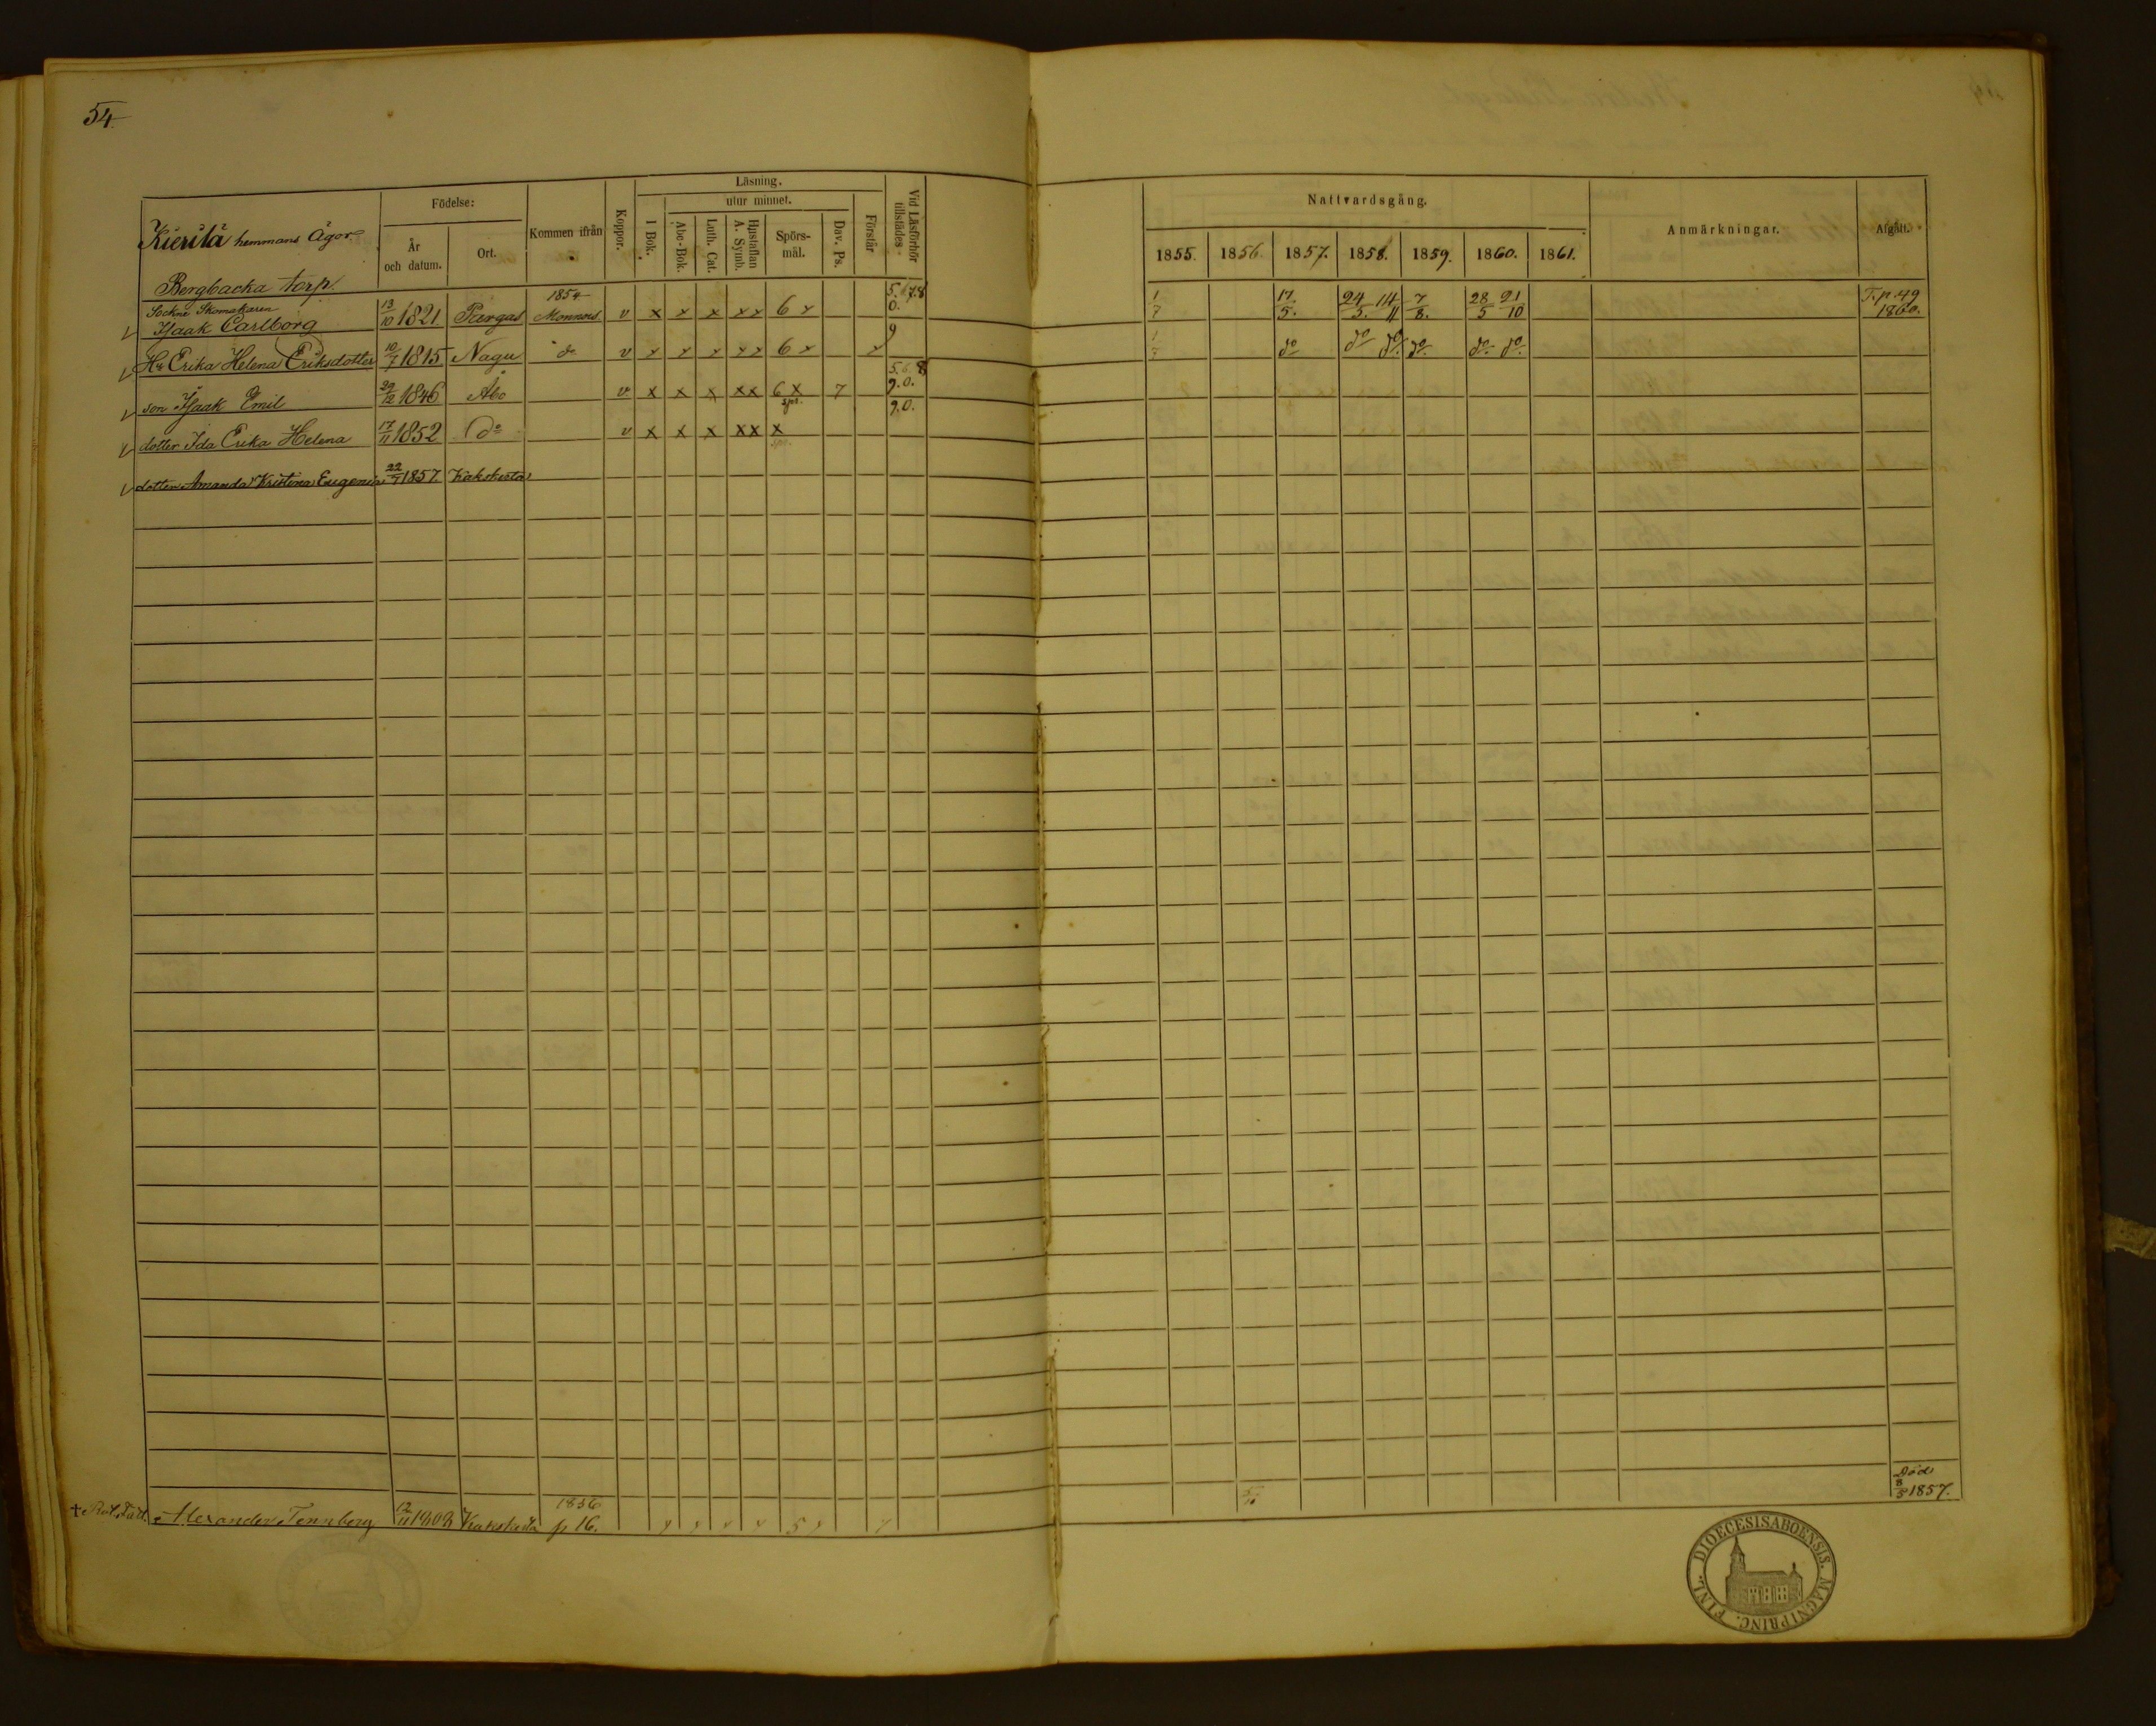 54.
Kierilä hemmans Ägor
Födelse:
År och datum.
Ort.
Kommen ifrån
Koppor.
Läsning.
I Bok.
utur minnet.
Abc-Bok.
Luth. Cat.
Hustaflan A. Symb.
Spörs-mål.
Dav. Ps.
Förstår
Vid Läsförhör tillstädes
Nattvardsgång.
1855. 1856. 1857. 1858. 1859. 1860. 1861.
Anmärkningar.
Afgått.
Bergbacka torp.
Sockne Skomakaren
Isaak Carlborg 13/10 1821. Pargas 1854 Monnois v x x x x x 6 x 5.6.7.8 0. 1/7 17/5. 24/5. 14/11 7/8. 28/5 21/10 T. p. 49 1860.
Hu Erika Helena Eriksdotter 10/7 1815 Nagu do v x x x x x 6 x x 9 1/7 do do do. do. do. do.
son Isaak Emil 29/12 1846 Åbo v x x x xx 6 x spr. 7 5.6.8 9.0.
dotter Ida Erika Helena 17/11 1852 do v x x x xx x 9.0.
dotter Amanda Kristina Eugenia 22/7 1857. Kakskerta
† Alexander Tennberg 12/11 1808 Kakskerta 1856 p 16. 5 5/10 Död 8/5 1857.
FINL. DIOECESIS ABOENSIS. MAGNI PRINC.